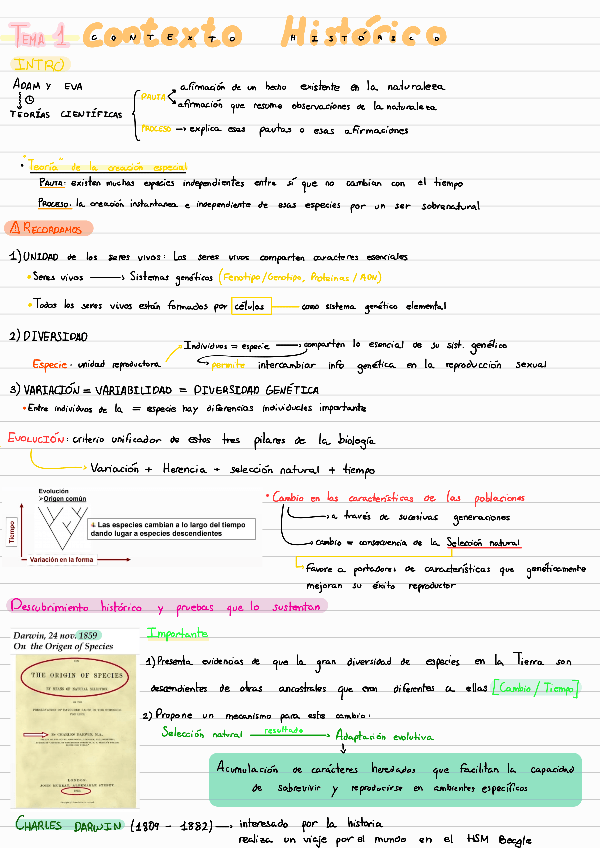 TEMA 1 Contexto Histórico
CONTEXTO HISTÓRICO
INTRO
ADAM Y EVA
TEORÍAS CIENTÍFICAS
PAUTA
afirmación de un hecho existente en la naturaleza
afirmación que resume observaciones de la naturaleza
PROCESO → explica esas pautas o esas afirmaciones
• "Teoría" de la creación especial
PAUTA: existen muchas especies independientes entre sí que no cambian con el tiempo
PROCESO: la creación instantánea e independiente de esas especies por un ser sobrenatural
⚠ RECORDAMOS
1) UNIDAD de los seres vivos: Los seres vivos comparten caracteres esenciales
• Seres vivos → Sistemas genéticos (Fenotipo/Genotipo, Proteínas/ADN)
• Todos los seres vivos están formados por células — como sistema genético elemental
2) DIVERSIDAD
Individuos = especie → comparten lo esencial de su sist. genético
Especie: unidad reproductora
permite intercambiar info genética en la reproducción sexual
3) VARIACIÓN = VARIABILIDAD = DIVERSIDAD GENÉTICA
• Entre individuos de la = especie hay diferencias individuales importante
EVOLUCIÓN: criterio unificador de estos tres pilares de la biología
→ Variación + Herencia + selección natural + tiempo
Evolución
>Origen común
Tiempo
Las especies cambian a lo largo del tiempo
dando lugar a especies descendientes
Variación en la forma
• Cambio en las características de las poblaciones
→ a través de sucesivas generaciones
→ cambio = consecuencia de la Selección natural
favore a portadores de características que genéticamente
mejoran su éxito reproductor
Descubrimiento histórico y pruebas que lo sustentan
Darwin, 24 nov. 1859
On the Origin of Species
THE ORIGIN OF SPECIES
BY MEANS OF NATURAL SELECTION,
BY CHARLES DARWIN, M.A.,
LONDON:
JOHN MURRAY, ALBEMARLE STREET.
Importante
1) Presenta evidencias de que la gran diversidad de especies en la Tierra son
descendientes de otras ancestrales que eran diferentes a ellas [Cambio / Tiempo]
2) Propone un mecanismo para este cambio:
Selección natural resultado → Adaptación evolutiva
Acumulación de carácteres heredados que facilitan la capacidad
de sobrevivir y reproducirse en ambientes específicos
CHARLES DARWIN (1809 - 1882) → interesado por la historia
realiza un viaje por el mundo en el HSM Beagle